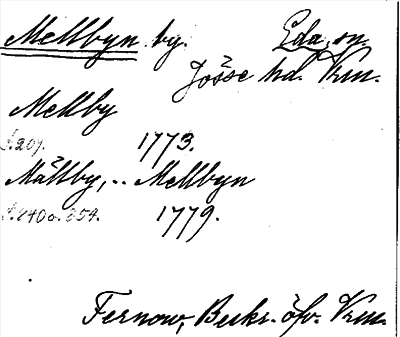 Mellbyn by. Eda sn.
Jösse hd. Vrm.
Mellby
s. 209. 1773.
Mällby, .. Mellbyn
s. 240 o. 354. 1779.
Fernow, Beskr. öfv. Vrm.